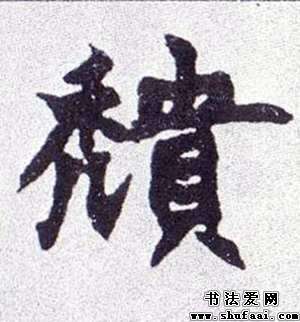 穨
书法爱网
www.shufaai.com